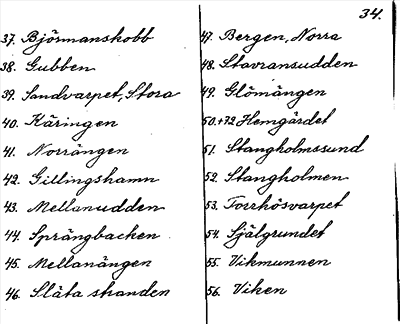 34.
37. Björnanskobb
38. Gubben
39. Sandvarpet, Stora
40. Käringen
41. Norrängen
42. Gillingshamn
43. Mellanudden
44. Sprängbacken
45. Mellanängen
46. Släta stranden
47. Bergen, Norra
48. Stavransudden
49. Glömängen
50.+72 Hemgärdet
51. Stangholmssund
52. Stangholmen
53. Torrhösvarpet
54. Själgrundet
55. Vikmunnen
56. Viken